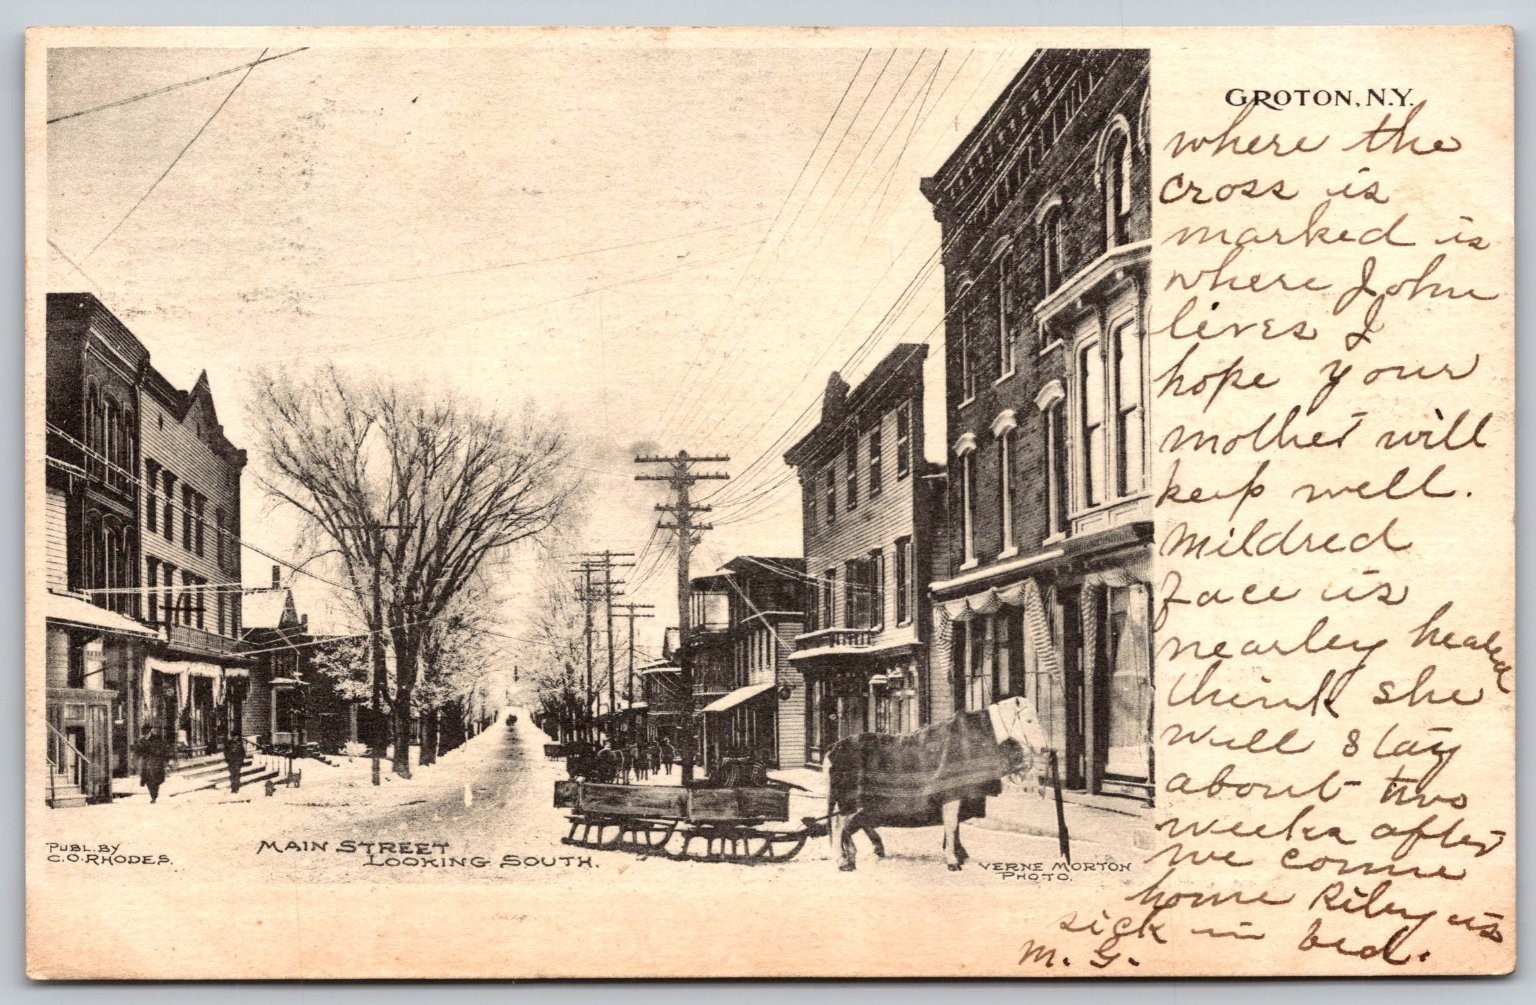 GROTON, N.Y.
where the
cross is
marked is
where John
lives I
hope your
mother will
keep well.
Mildred
face is
nearley healed
think she
will stay
about two
weeks after
we come
home Riley is
sick in bed.
M. G.
PUBL. BY
C.O. RHODES.
MAIN STREET
LOOKING SOUTH.
VERNE MORTON
PHOTO.